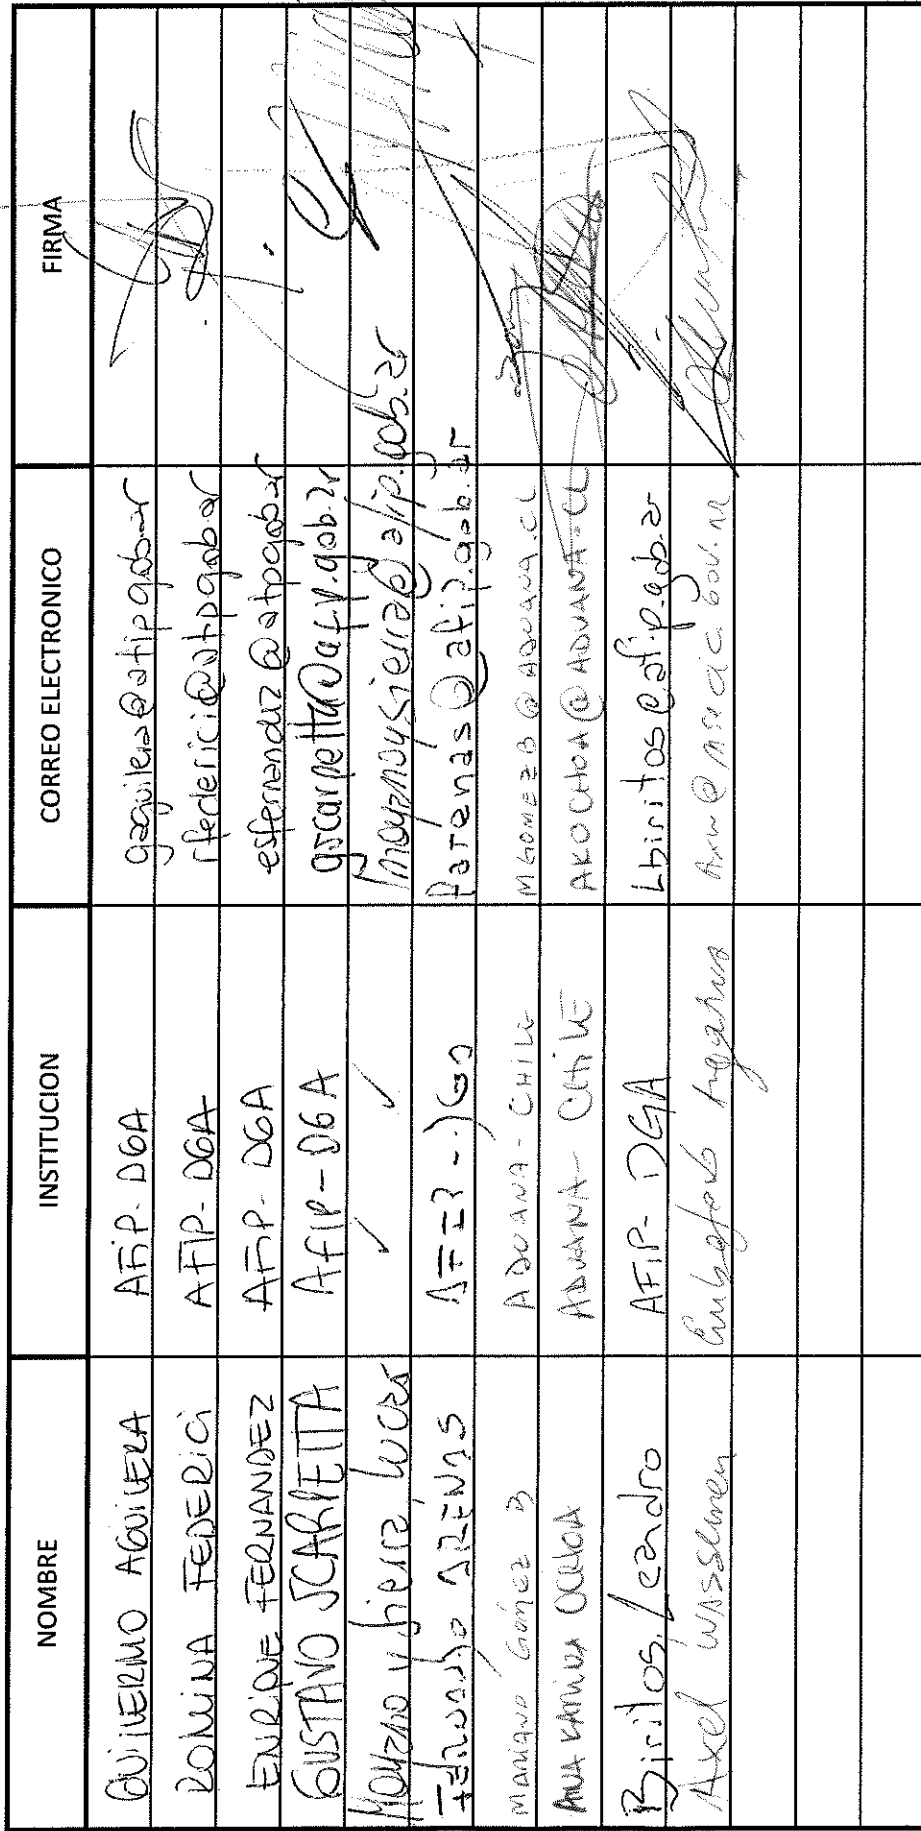 NOMBRE INSTITUCION CORREO ELECTRONICO FIRMA
GUILLERMO AGUILERA AFIP-DGA gaguilera@afip.gob.ar
ROMINA FEDERICI AFIP-DGA rfederici@afip.gob.ar
ENRIQUE FERNANDEZ AFIP-DGA esfernandez@afip.gob.ar
GUSTAVO SCARPETTA AFIP-DGA gscarpetta@afip.gob.ar
Moyano y Sierra Lucas ✓ ✓ lmoyanoysierra@afip.gob.ar
ARENAS parenas@afip.gob.ar
MARIANO Gómez B ADUANA-CHILE MGOMEZB@ADUANA.CL
ANA KARINA OCHOA ADUANA-CHILE AKOCHOA@ADUANA.CL
Biritos, Leandro AFIP-DGA Lbiritos@afip.gob.ar
Axel Wasserman Embajada Argentina